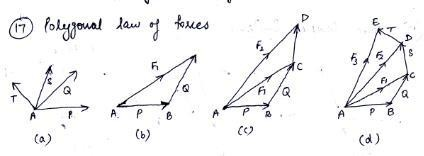 (17) Polygonal law of forces
T S Q A P
(a)
F₁ Q A P B
(b)
D F₂ C F₁ Q A P B
(c)
E T D F₃ F₂ S C F₁ Q A P B
(d)